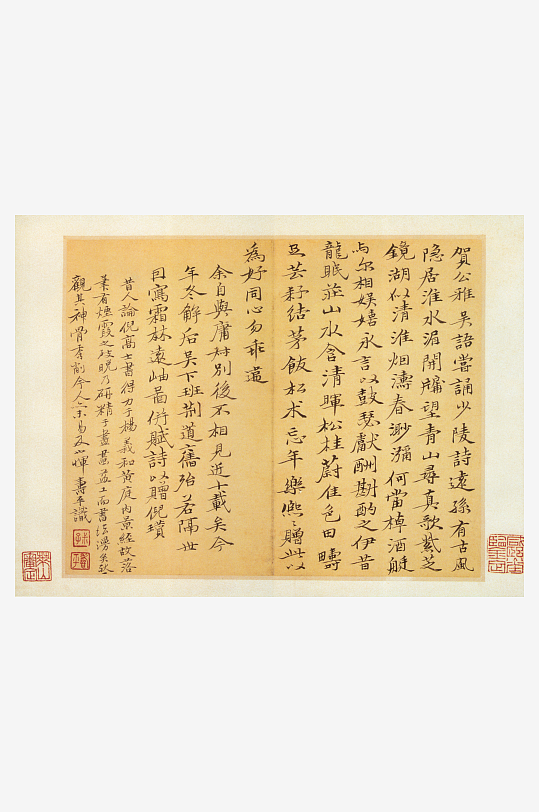 賀公雅吳語嘗誦少陵詩遠孫有古風
隐居淮水湄開牖望青山尋真歌紫芝
鏡湖似清淮烟濤春渺瀰何當棹酒艇
与尔相娱嬉永言以鼓瑟獻酬斟酌之伊昔
龍眠莊山水含清暉松桂蔚佳色田疇
且芸耔結茅飯松术忘年樂熙〻贈此以
為好同心勿乖違
余自與庸村別後不相見近十載矣今
年冬解后吴下班荆道舊殆若隔世
因寫霜林遠岫啚併賦詩以贈倪瓚
昔人論倪高士書得力于楊羲和黄庭内景經故落
筆有煙霞之致晚乃研精于畫畫益工而書法
觀其神骨秀削今人未易及 惲壽平識